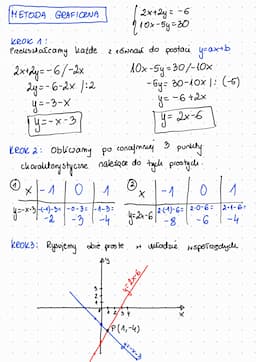 METODA GRAFICZNA
{2x+2y=-6
10x-5y=30
KROK 1:
Przekształcamy każde z równań do postaci y=ax+b
2x+2y=-6 /-2x
2y=-6-2x /:2
y=-3-x
y=-x-3
10x-5y=30 /-10x
-5y=30-10x /:(-5)
y=-6+2x
y=2x-6
KROK 2: Obliczamy po conajmniej 3 punkty
charakterystyczne należące do tych prostych.
① x -1 0 1
y=-x-3 -(-1)-3= -0-3= -1-3=
-2 -3 -4
② x -1 0 1
y=2x-6 2·(-1)-6= 2·0-6= 2·1-6=
-8 -6 -4
KROK3: Rysujemy obie proste w układzie współrzędnych
y
y=2x-6
3
2
1
1 2 3 4
x
P(1,-4)
y=-x-3